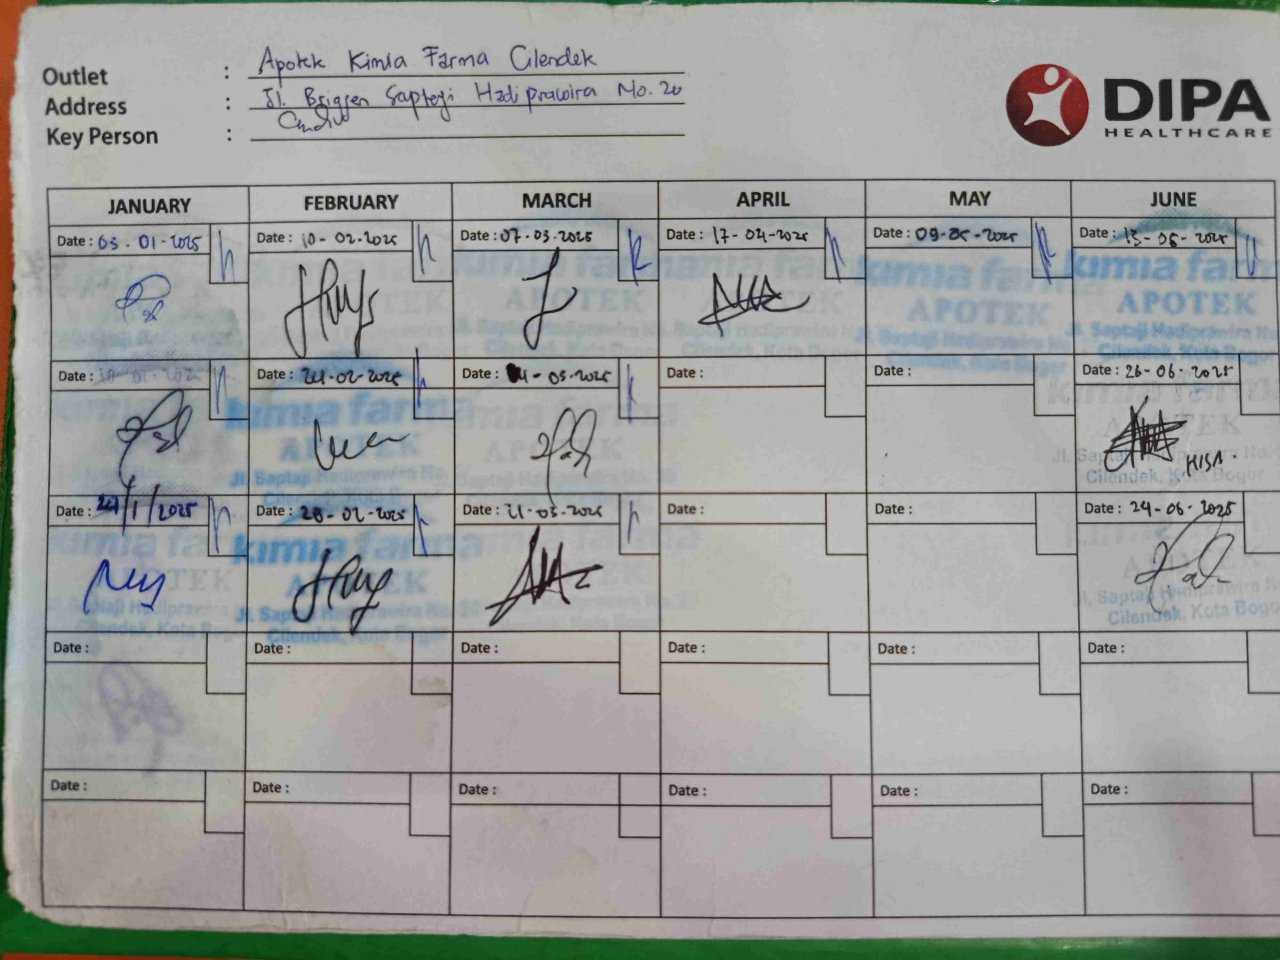 Outlet : Apotek Kimia Farma Cilendek
Address : Jl. Brigjen Saptaji Hadiprawira No. 20
Key Person :
DIPA
HEALTHCARE
JANUARY FEBRUARY MARCH APRIL MAY JUNE
Date : 03 . 01 - 2025 Date : 10 - 02 - 2025 Date : 07 - 03 - 2025 Date : 17 - 04 - 2025 Date : 09 - 05 - 2025 Date : 13 - 06 - 2025
kimia farma
APOTEK
Jl. Saptaji Hadiprawira No.
Cilendek, Kota Bogor
Date : Date : 21 - 02 - 2025 Date : - 03 - 2025 Date : Date : Date : 26 - 06 - 2025
kimia farma
APOTEK
Jl. Saptaji Hadiprawira No.
Cilendek, Kota Bogor
Date : /1/2025 Date : 28 - 02 - 2025 Date : 21 - 03 - 2025 Date : Date : Date : 24 - 06 - 2025
kimia farma
APOTEK
Jl. Saptaji Hadiprawira No. 20
Cilendek, Kota Bogor
Date : Date : Date : Date : Date : Date :
Date : Date : Date : Date : Date : Date :